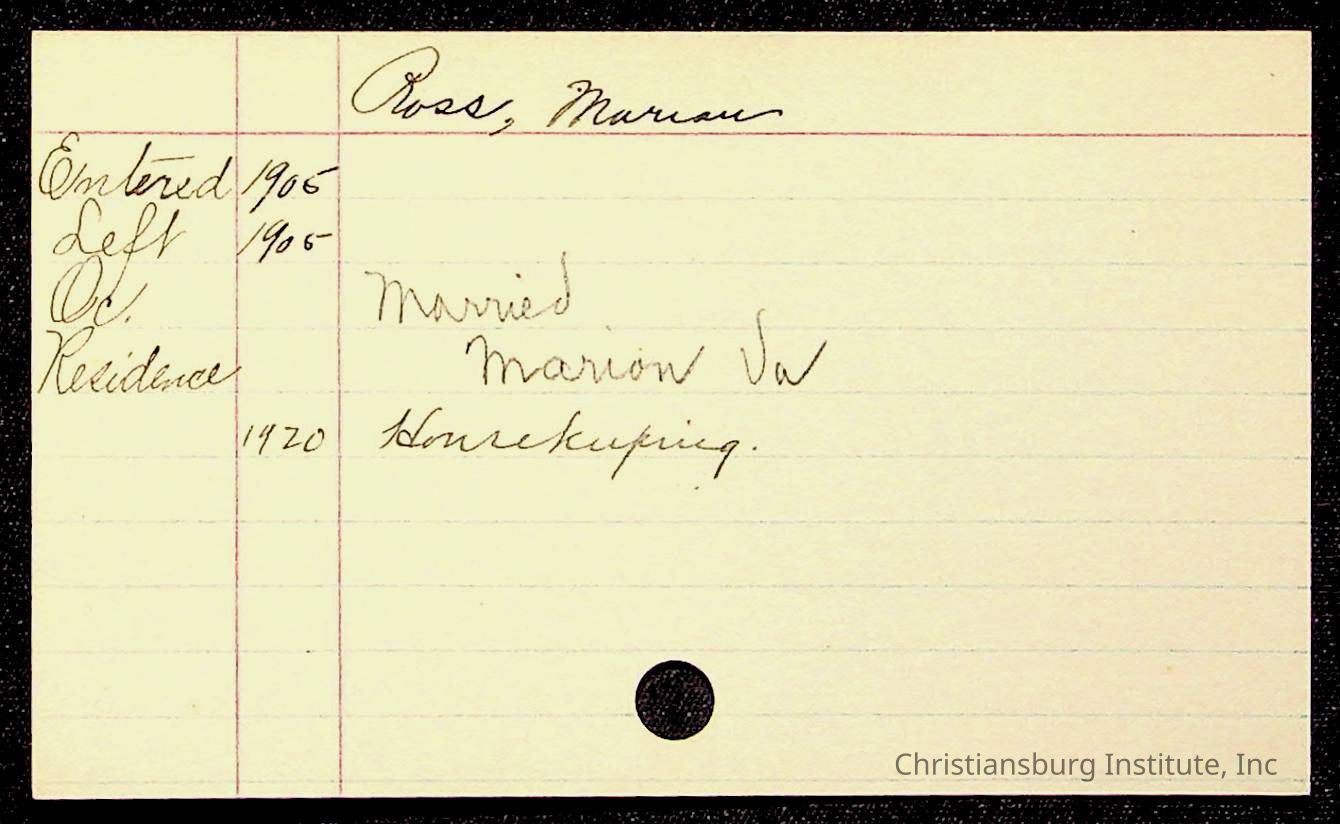 Ross, Marian
Entered 1905
Left 1905
Oc. Married
Residence Marion Va
1920 Housekeeping.
Christiansburg Institute, Inc